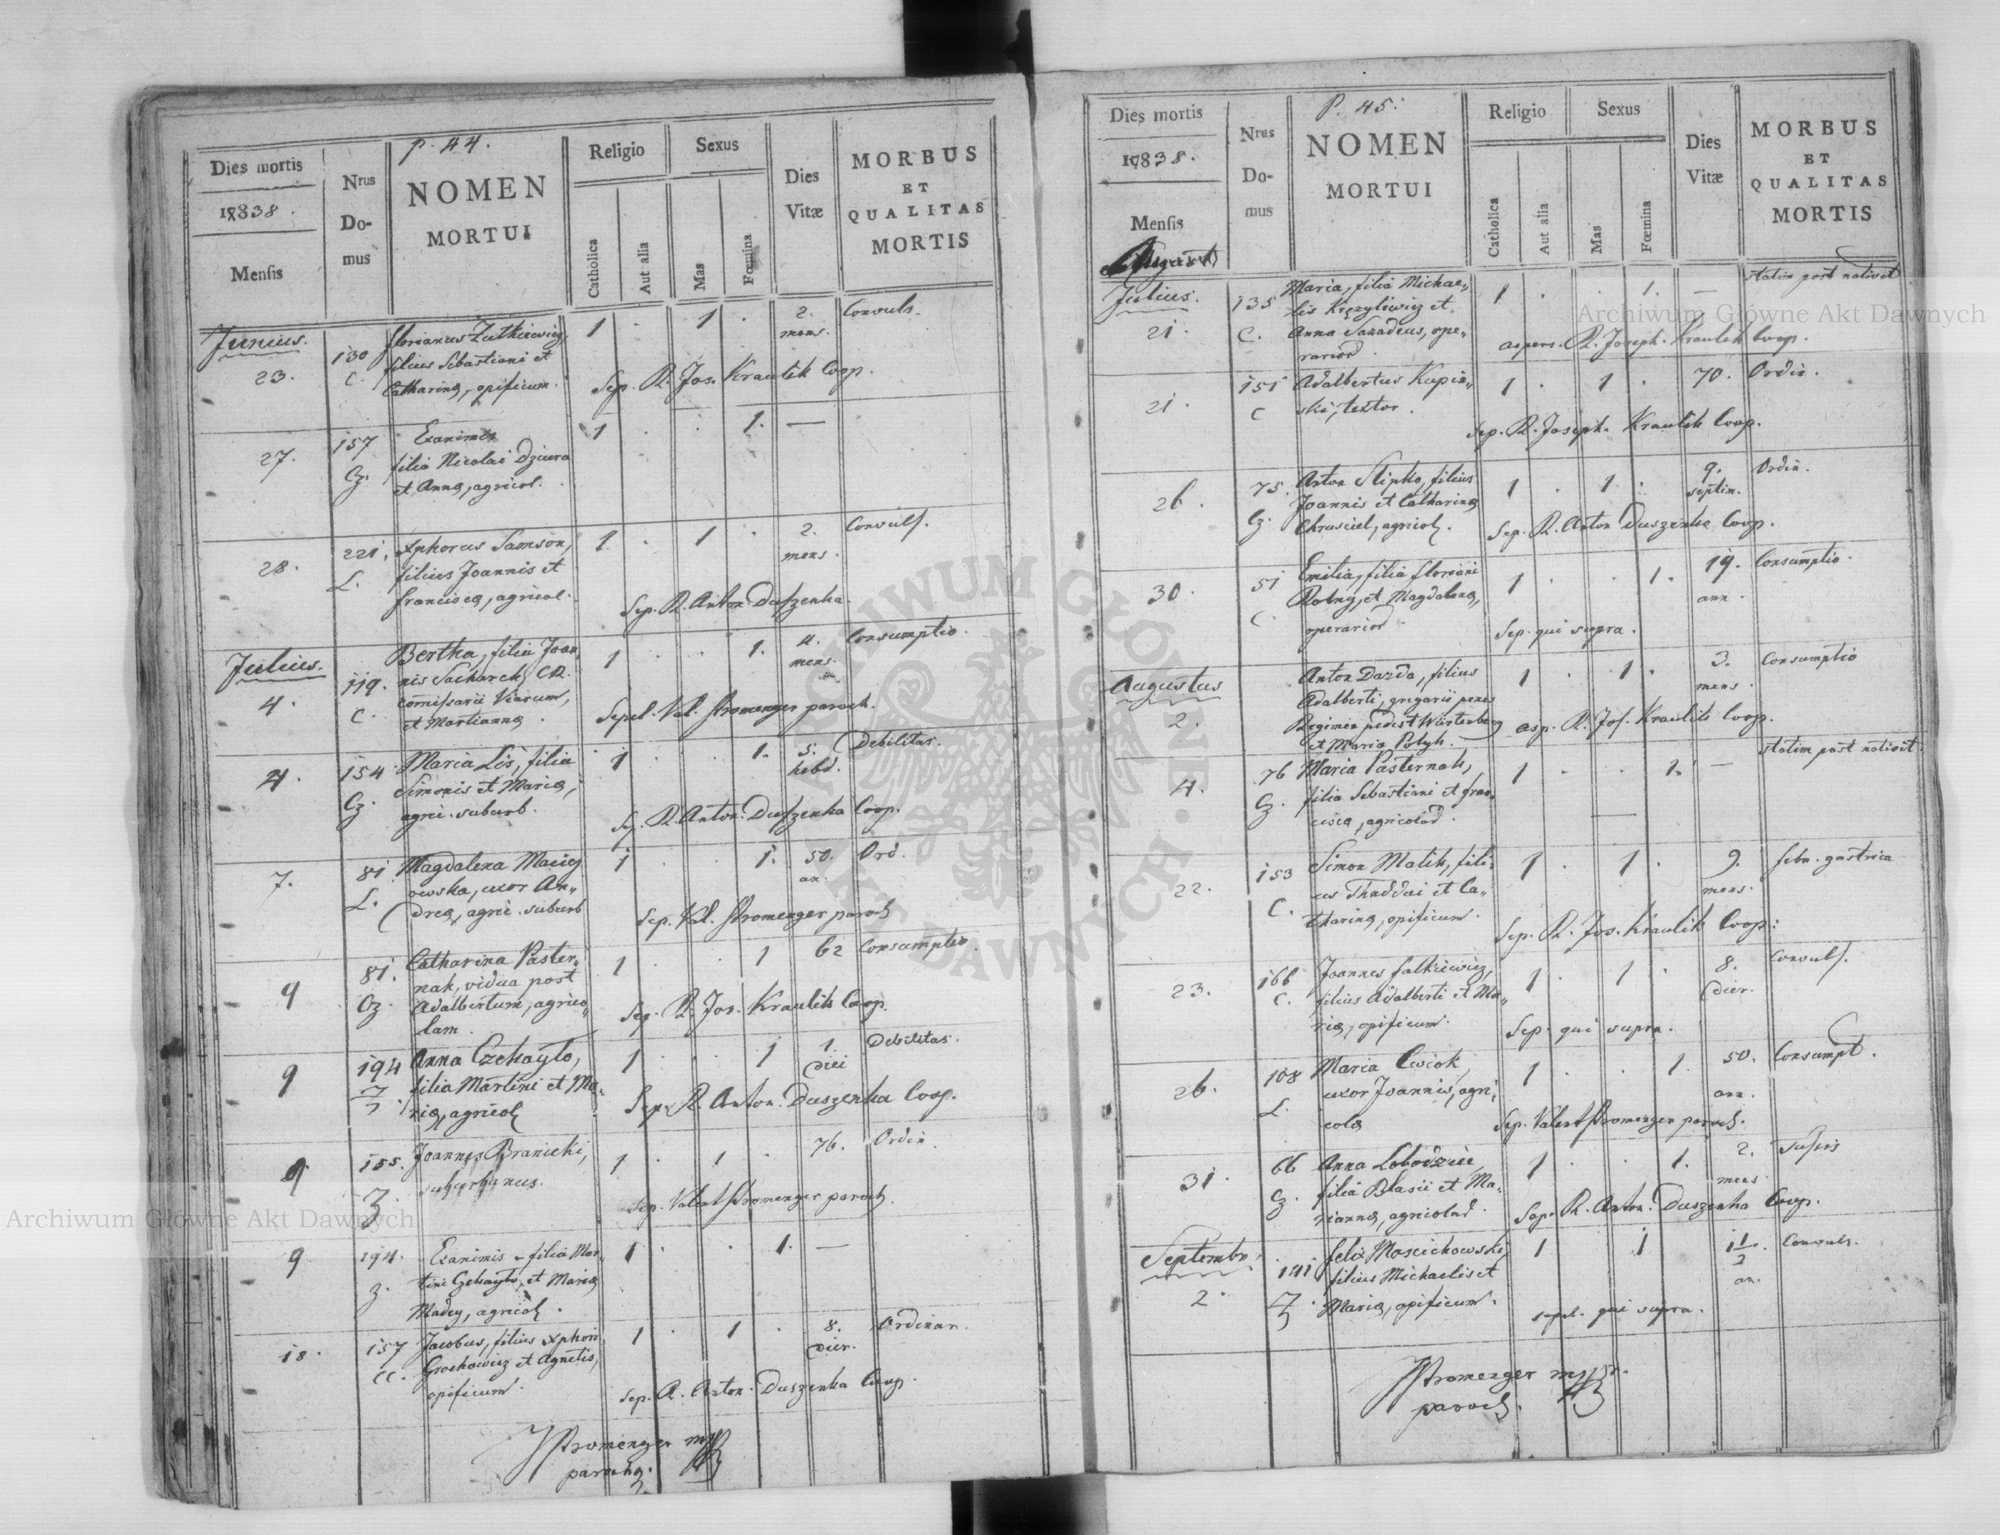 P. 44.
Dies mortis
1838.
Mensis
Nrus
Do-
mus
NOMEN
MORTUI
Religio
Catholica
Aut alia
Sexus
Mas
Fœmina
Dies
Vitæ
MORBUS
ET
QUALITAS
MORTIS
Junius.
23.
130
C.
Florianus Zutkiewicz,
filius Sebastiani et
Catharinæ, opificum.
1 . 1 .
2.
mens.
Convuls.
Sep. R. Jos. Kraulik Coop.
27.
157
Cz.
Exanimis
filia Nicolai Dziura
et Annæ, agricol.
1 . . 1. —
28.
221.
L.
Xphorus Samson,
filius Joannis et
Franciscæ, agricol.
1 . 1 .
2.
mens.
Convuls.
Sep. R. Anton Duszenka.
Julius.
4.
119.
C.
Bertha, filia Joan
nis Sacharek, CR.
comissarii Viarum,
et Martianna.
1 . . 1.
4.
mens.
Consumptio.
Sepel. Val. Stromenger paroch.
4.
154
Cz.
Maria Lis, filia
Simonis et Mariæ,
agric. suburb.
1 . . 1.
5.
hebd.
Debilitas.
Sep. R. Anton. Duszenka Coop.
7.
81
L.
Magdalena Maciej
owska, uxor An-
dreæ, agric. suburb
1 . . 1.
50.
an.
Ord.
Sep. Val. Stromenger paroch
9
81.
Cz.
Catharina Paster-
nak, vidua post
Adalbertum, agrico-
lam.
1 . . 1
62
Consumptio.
Sep. R. Jos. Kraulik Coop.
9
194
Z.
Anna Czehayło,
filia Martini et Ma-
riæ, agricol
1 . . 1
1.
diei
Debilitas.
Sep. R. Anton. Duszenka Coop.
9.
155.
Z.
Joannes Branicki,
suburbanus.
1 . 1 .
76.
Ordin.
Sep. Valent Stromenger paroch.
9
194.
Z.
Exanimis filia Mar-
tini et Mariæ
Madey, agricol.
1 . . 1. —
18.
157
CC.
Jacobus, filius Xphori
Grochowicz et Agnetis,
opificum.
1 . 1 .
8.
dier.
Ordinar.
Sep. R. Anton. Duszenka Coop.
VStromenger mpp
parochus.
P. 45.
Dies mortis
1838.
Mensis
Nrus
Do-
mus
NOMEN
MORTUI
Religio
Catholica
Aut alia
Sexus
Mas
Fœmina
Dies
Vitæ
MORBUS
ET
QUALITAS
MORTIS
Julius.
21.
135
C.
Maria, filia Michae-
lis et
Anna Sazadeus, ope-
rarior.
1 . . 1. —
statim post nativit
aspers. R. Joseph. Kraulik Coop.
21.
151
C
Adalbertus Kupin-
ski, textor.
1 . 1 .
70.
Ordin.
Sep. R. Joseph. Kraulik Coop.
26.
75.
Cz.
Anton Slipko, filius
Joannis et Catharinæ
Chrusciel, agricol.
1 . 1. .
9.
septim.
Ordin.
Sep. R. Anton Duszenka Coop.
30.
51
C.
Emilia, filia Floriani
Rolny, et Magdalenæ,
operarior
1 . . 1.
19.
ann.
Consumptio.
Sep. qui supra.
Augustus
2.
Anton Dazda, filius
Adalberti, gregarii penes
Regimen pedest Würtenberg
et Maria Polyk.
1 . 1 .
3.
mens.
Consumptio
asp. R. Jos. Kraulik Coop.
4.
76
Cz.
Maria Pasternak,
filia Sebastiani et Fran-
ciscæ, agricolar.
1 . . 1. —
statim post nativit.
22.
153
C.
Simon Malik, fili-
us Thaddæi et Ca-
tharinæ, opificum.
1 . 1 .
9.
mens.
febr. gastrica
Sep. R. Jos. Kraulik Coop:
23.
166
C.
Joannes Falkiewicz,
filius Adalberti et Ma-
riæ, opificum.
1 . 1 .
8.
dier.
Convuls.
Sep. qui supra.
26.
108
L.
Maria Cwiok,
uxor Joannis, agri-
cola
1 . . 1.
50.
ann.
Consumpt.
Sep. Valent Stromenger paroch.
31.
66
Cz.
Anna Lobodziec,
filia Blasii et Ma-
riannæ, agricolar.
1 . . 1.
2.
mens
Tussis
Sep. R. Anton. Duszenka Coop.
Septembr.
2.
141
Z.
Felix Moscichowski,
filius Michaelis et
Mariæ, opificum.
1 . 1
1 1/2.
an.
Convuls.
sepel. qui supra.
VStromenger mpp
paroch.
Archiwum Główne Akt Dawnych
Archiwum Główne Akt Dawnych
ARCHIWUM GŁÓWNE AKT DAWNYCH